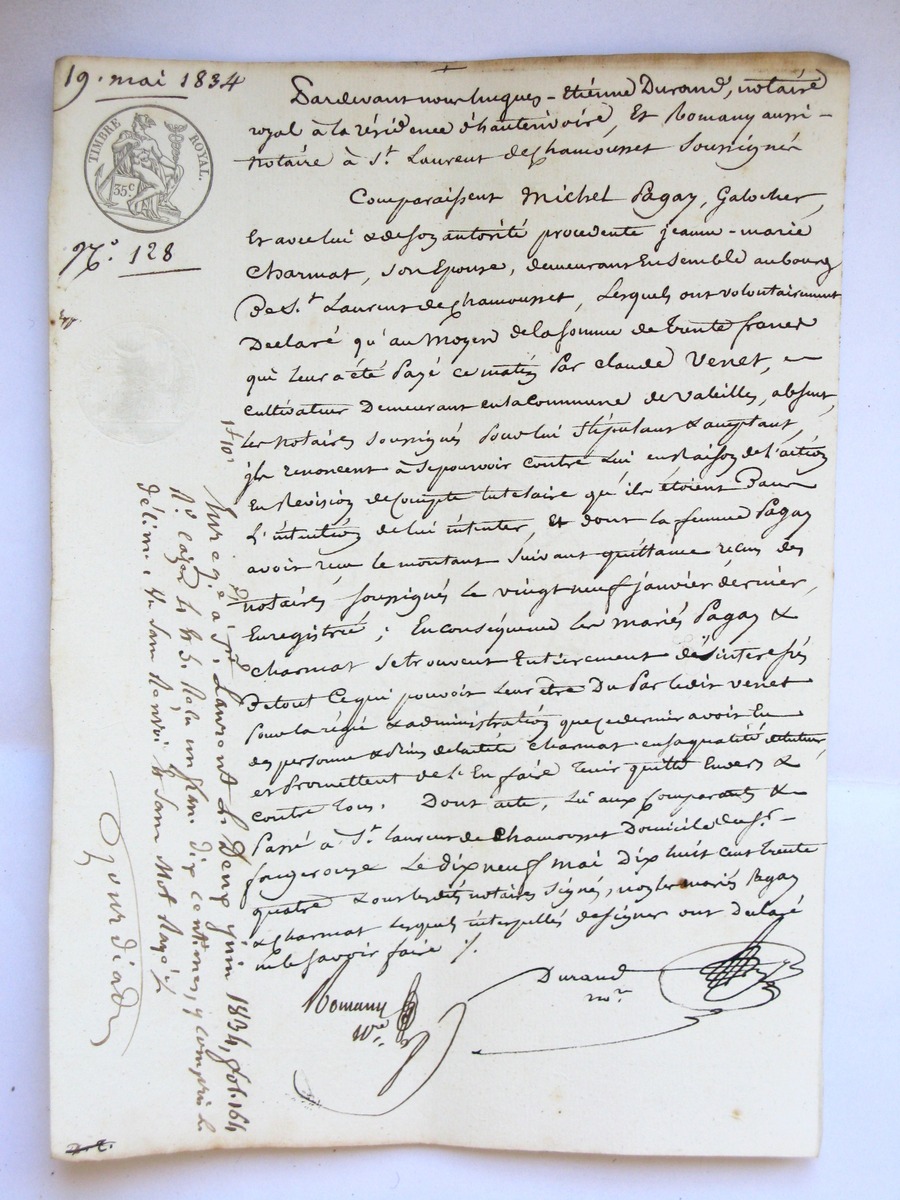 19. mai 1834
TIMBRE ROYAL.
35c
N.o 128
Pardevant nous hugues-Etienne Durand, notaire
royal à la résidence d'hauterivoire, Et Romany aussi
notaire à St. Laurent de Chamousset Soussignés
Comparaissent Michel Pagay, Galocher,
Et avec lui & de son autorité procedente jeanne-marie
Charmat, son Epouse, demeurant Ensemble au bourg
De St. Laurent de Chamousset, Lesquels ont volontairement
Declaré qu'au Moyen de la somme de trente francs
qui leur a été Payé ce matin Par Claude Venet,
cultivateur Demeurant en la Commune de Valeilles, absent,
Les notaires soussignés Pour lui Stipulant & acceptant,
ils renoncent à se pourvoir contre Lui en Raison de l'action
En Revision de Compte tutelaire qu'ils étoient Dans
L'intention de lui intenter, Et dont la femme Pagay
avoir reçu le montant Suivant quittance reçue des
notaires soussignés le vingt neuf janvier dernier,
Enregistrée; En conséquence les mariés Pagay &
Charmat se trouvent Entierement désinteressés
De tout Ce qui pouvoit leur être Du Par ledit Venet
Pour la régie & administration que ce dernier avoit Eu
des personne & biens de la dite Charmat en sa qualité de tuteur,
et Promettent de l'En faire tenir quitte Envers &
contre tous. Dont acte, Lu aux Comparants &
Passé à St. Laurent de Chamousset Domicile du Sr.
fougerouse Le dix neuf mai Dix huit cent trente
quatre & ont lesdits notaires Signé, non les mariés Pagay
& Charmat Lesquels interpellés de signer ont Declaré
ne le Savoir faire ./.
Romany
Nre.
Durand
nore
1f 10c
Enreg.é à St. Laurent le Deux juin 1834, fol. 164
R.o Cazes 4 & 5. Reçu un franc dix centimes, y compris le
décime Un Sans Renvoi & Sans Mot Rayé ./.